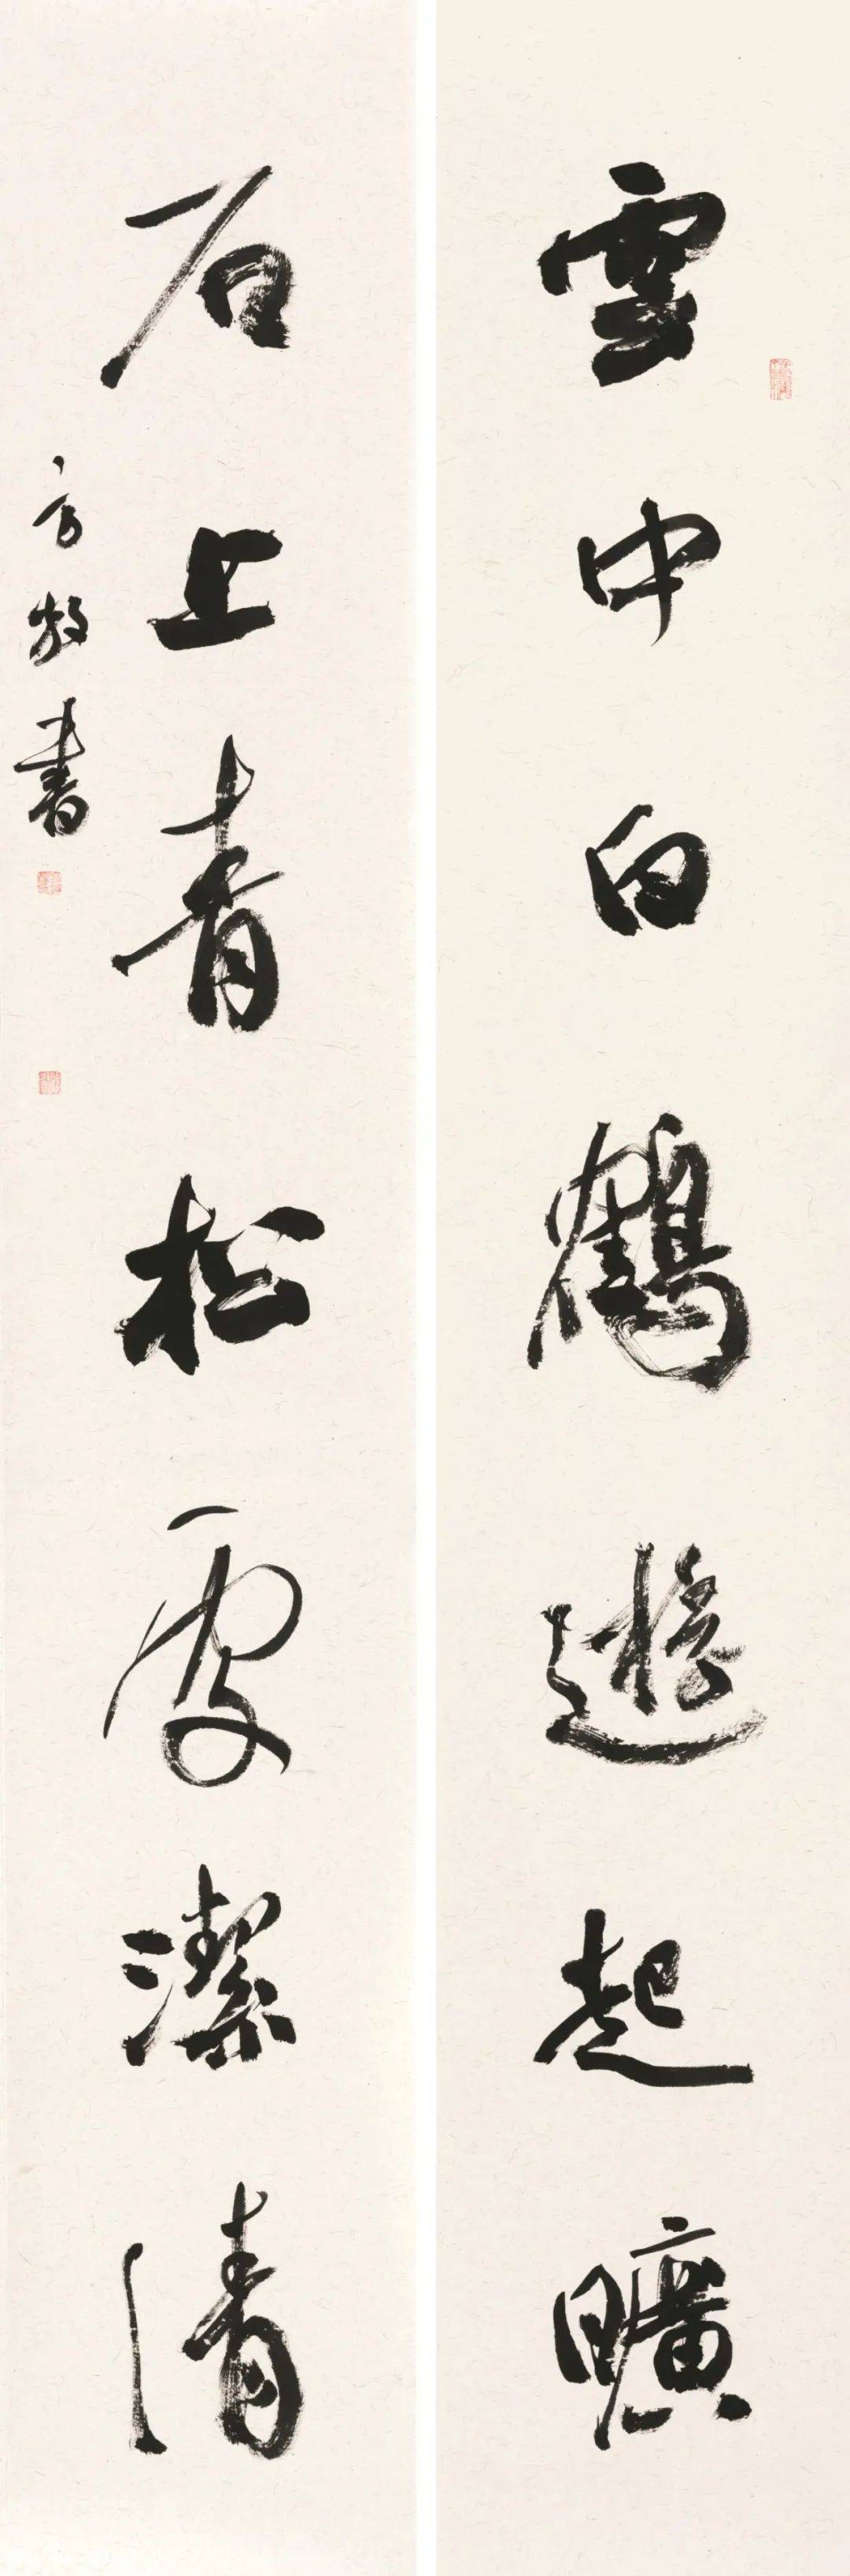 雲中白鶴遊起曠
石上青松處潔清
方放書